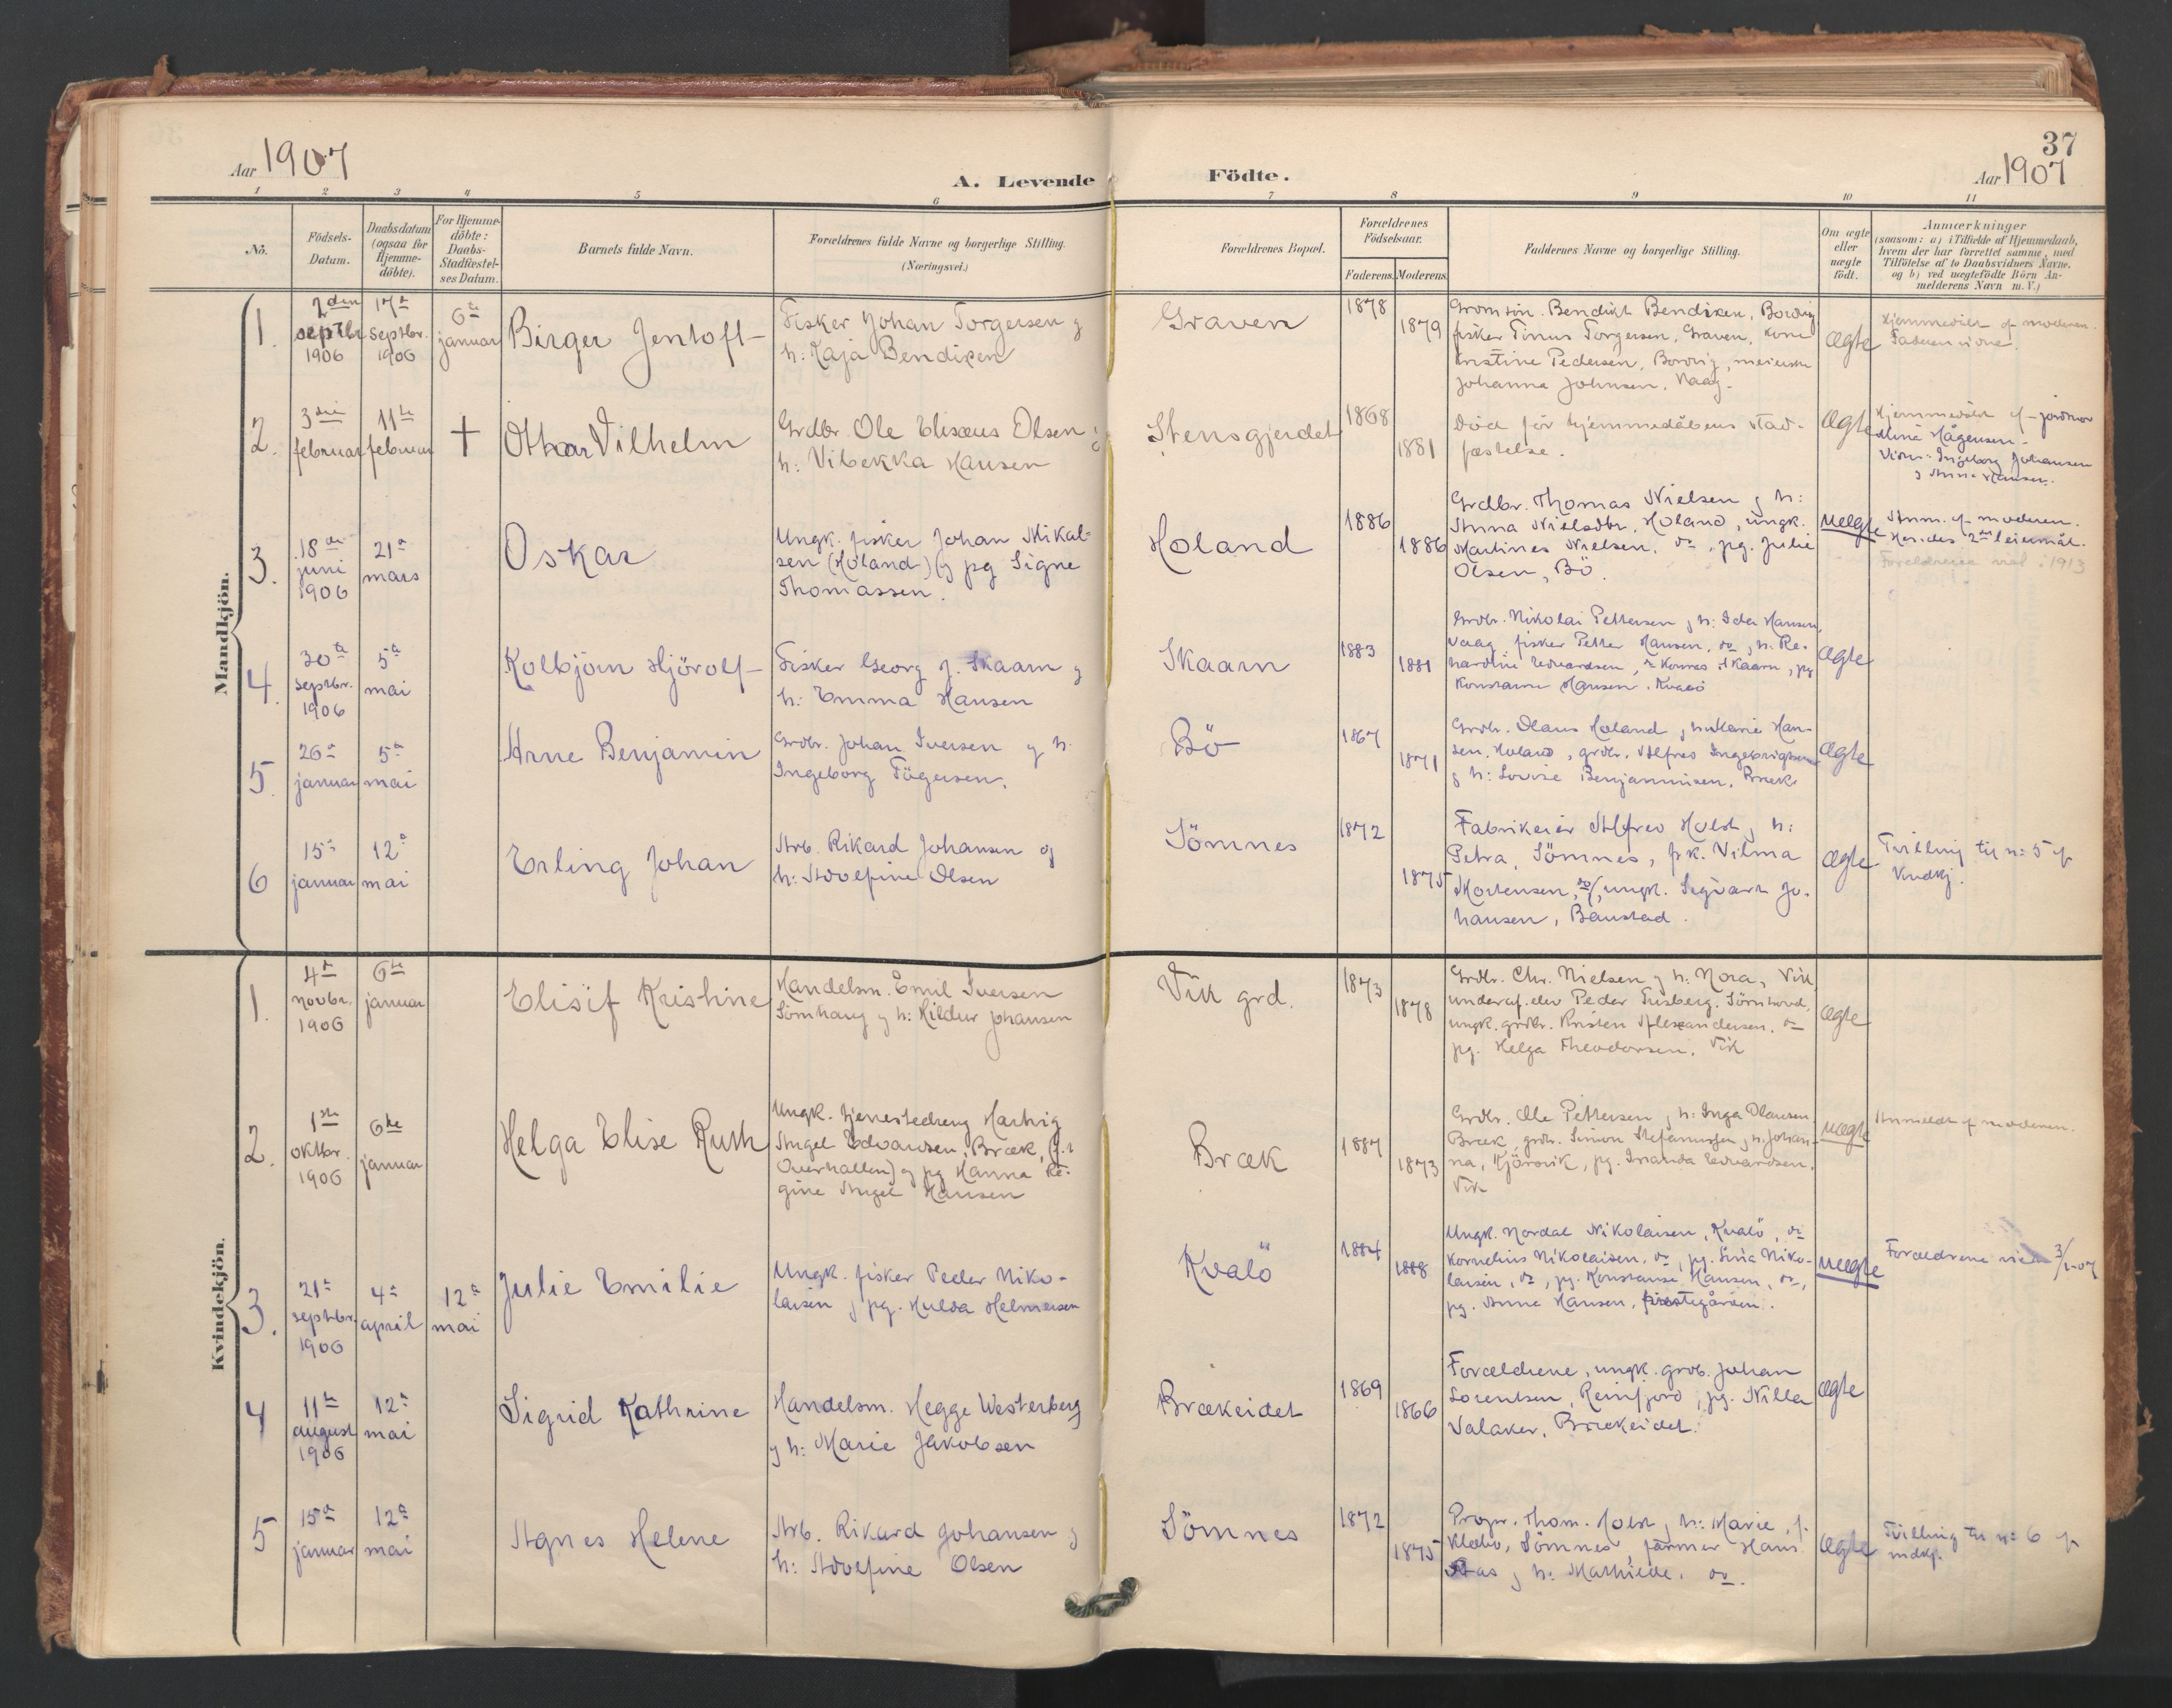 37
Aar 1907
A. Levende Födte.
Aar 1907
1 2 3 4 5 6 7 8 9 10 11
No.
Födsels-
Datum.
Daabsdatum
(ogsaa for
Hjemme-
döbte).
For Hjemme-
döbte:
Daabs-
Stadfæstel-
ses Datum.
Barnets fulde Navn.
Forældrenes fulde Navne og borgerlige Stilling.
(Næringsvei.)
Forældrenes Bopæl.
Forældrenes
Födselsaar.
Faderens. Moderens.
Faddernes Navne og borgerlige Stilling.
Om ægte
eller
uægte
födt.
Anmærkninger
(saasom: a) i Tilfælde af Hjemmedaab,
hvem der har forrettet samme, med
Tilföielse af to Daabsvidners Navne.
og b) ved uægtefödte Börn An-
melderens Navn m. V.)
Mandkjön.
1.
2den
septbr
1906
17de
septbr.
1906
6te
januar
Birger Jentoft
Fisker Johan Torgersen og
h: Kaja Bendixen
Graven
1878
1879
Bendikt Bendixen,
fisker Tinus Torgersen, Graven, kone
Kristine Pedersen,
Johanna Johnsen, Vaag.
ægte
Hjemmedöbt af moderen.
2.
3die
februar
11te
februar
†
Othar Vilhelm
Grdbr. Ole Eliseus Olsen og
h: Vibekka Hansen
Stensgjerdet
1868
1881
Död för hjemmedåbens stad-
fæstelse.
ægte
Hjemmedöbt af jordmor
Mina Hågensen.
Vidner: Ingeborg Johansen
og Anna Hansen.
3.
18de
juni
1906
21de
mars
Oskar
Ungk. fisker Johan Mikal-
sen (Holand) og pg Signe
Thomassen.
Holand
1886
1886
Grdbr. Thomas Nielsen og h:
Anna Nielsdtr. Holand, ungk.
Martines Nielsen, do, pg. Julie
Olsen, Bö.
uægte
Anm. af moderen.
Hendes 2det leiermål.
Forældrene viet i 1913
4.
30te
septbr.
1906
5te
mai
Kolbjörn Hjörolf
Fisker Georg J. Skaarn og
h: Emma Hansen
Skaarn
1883
1881
Grdbr. Nikolai Pettersen og h: Ida Hansen,
Vaag, fisker Petter Hansen, do og h: Re-
hardine Edvardsen, Skaarn, pg
Konstanse Hansen. Kvalö
ægte
5.
26de
januar
5te
mai
Arne Benjamin
Grdbr. Johan Iversen og h:
Ingeborg Tögersen.
Bö
1867
1871
Grdbr. Olaus Holand og h: Marie Han-
sen, Holand, grdbr. Alfred Ingebrigtsen
og h: Lovise Benjaminsen, Bræk
ægte
6
15de
januar
12te
mai
Erling Johan
Arb. Rikard Johansen og
h: Adolfine Olsen
Sömnes
1872
1875
Fabrikeier Alfred Holst og h:
Petra, Sömnes, frk. Vilma
Mortensen, do, ungk. Sigvart Jo-
hansen, Baustad.
ægte
Tvilling til n: 5 af
kvdkj.
Kvindekjön.
1.
4de
novbr.
1906
6te
januar
Elisif Kristine
Handelsm. Emil Iversen
Sömhaug og h: Hildur Johansen
Vik grd.
1873
1878
Grdbr. Chr. Nielsen og h: Nora, Vik
underof.elev Peder Trisberg,
ungk. grdbr. Kristen Alexandersen, do
pg. Helga Theodorsen. Vik
ægte
2.
1ste
oktbr.
1906
6te
januar
Helga Elise Ruth
Ungk. tjenestedreng Hartvig
Angel Edvardsen, Bræk, (f. i
Overhallen) og pg Hanna Re-
gine Angel Hansen
Bræk
1887
1873
Grdbr. Ole Pettersen og h: Inga Olausen
Bræk, grdbr. Simon Stefanussen og h. Johan-
na, Kjörsvik, pg. Iranda Edvardsen.
Vik
uægte
Anmeldt af moderen.
3.
21de
septbr.
1906
4de
april
12te
mai
Julie Emilie
Ungk. fisker Peder Niko-
laisen og pg. Hulda Helmersen
Kvalö
1884
1888
Ungk. Nordal Nikolaisen, Kvalö, do
Kornelius Nikolaisen, do, pg. Lina Niko-
laisen, do, pg. Konstanse Hansen, do,
pg. Anna Hansen, prestegården.
uægte
Forældrene viet 3/1-07
4
11te
august
1906
12te
mai
Sigrid Kathrine
Handelsm. Hegge Westerberg
og h: Marie Jakobsen
Brækeidet
1869
1866
Forældrene, ungk. grdb. Johan
Lorentsen, Reinfjord, pg. Nilla
Valaker, Brækeidet.
ægte
5
15de
januar
12te
mai
Agnes Helene
Arb. Rikard Johansen og
h: Adolfine Olsen
Sömnes
1872
1875
Propr. Thom. Holst og h: Marie, f.
Klæbo, Sömnes, farmer Hans
Aas og h: Mathilde, do.
ægte
Tvilling til n: 6 af
mdkj.